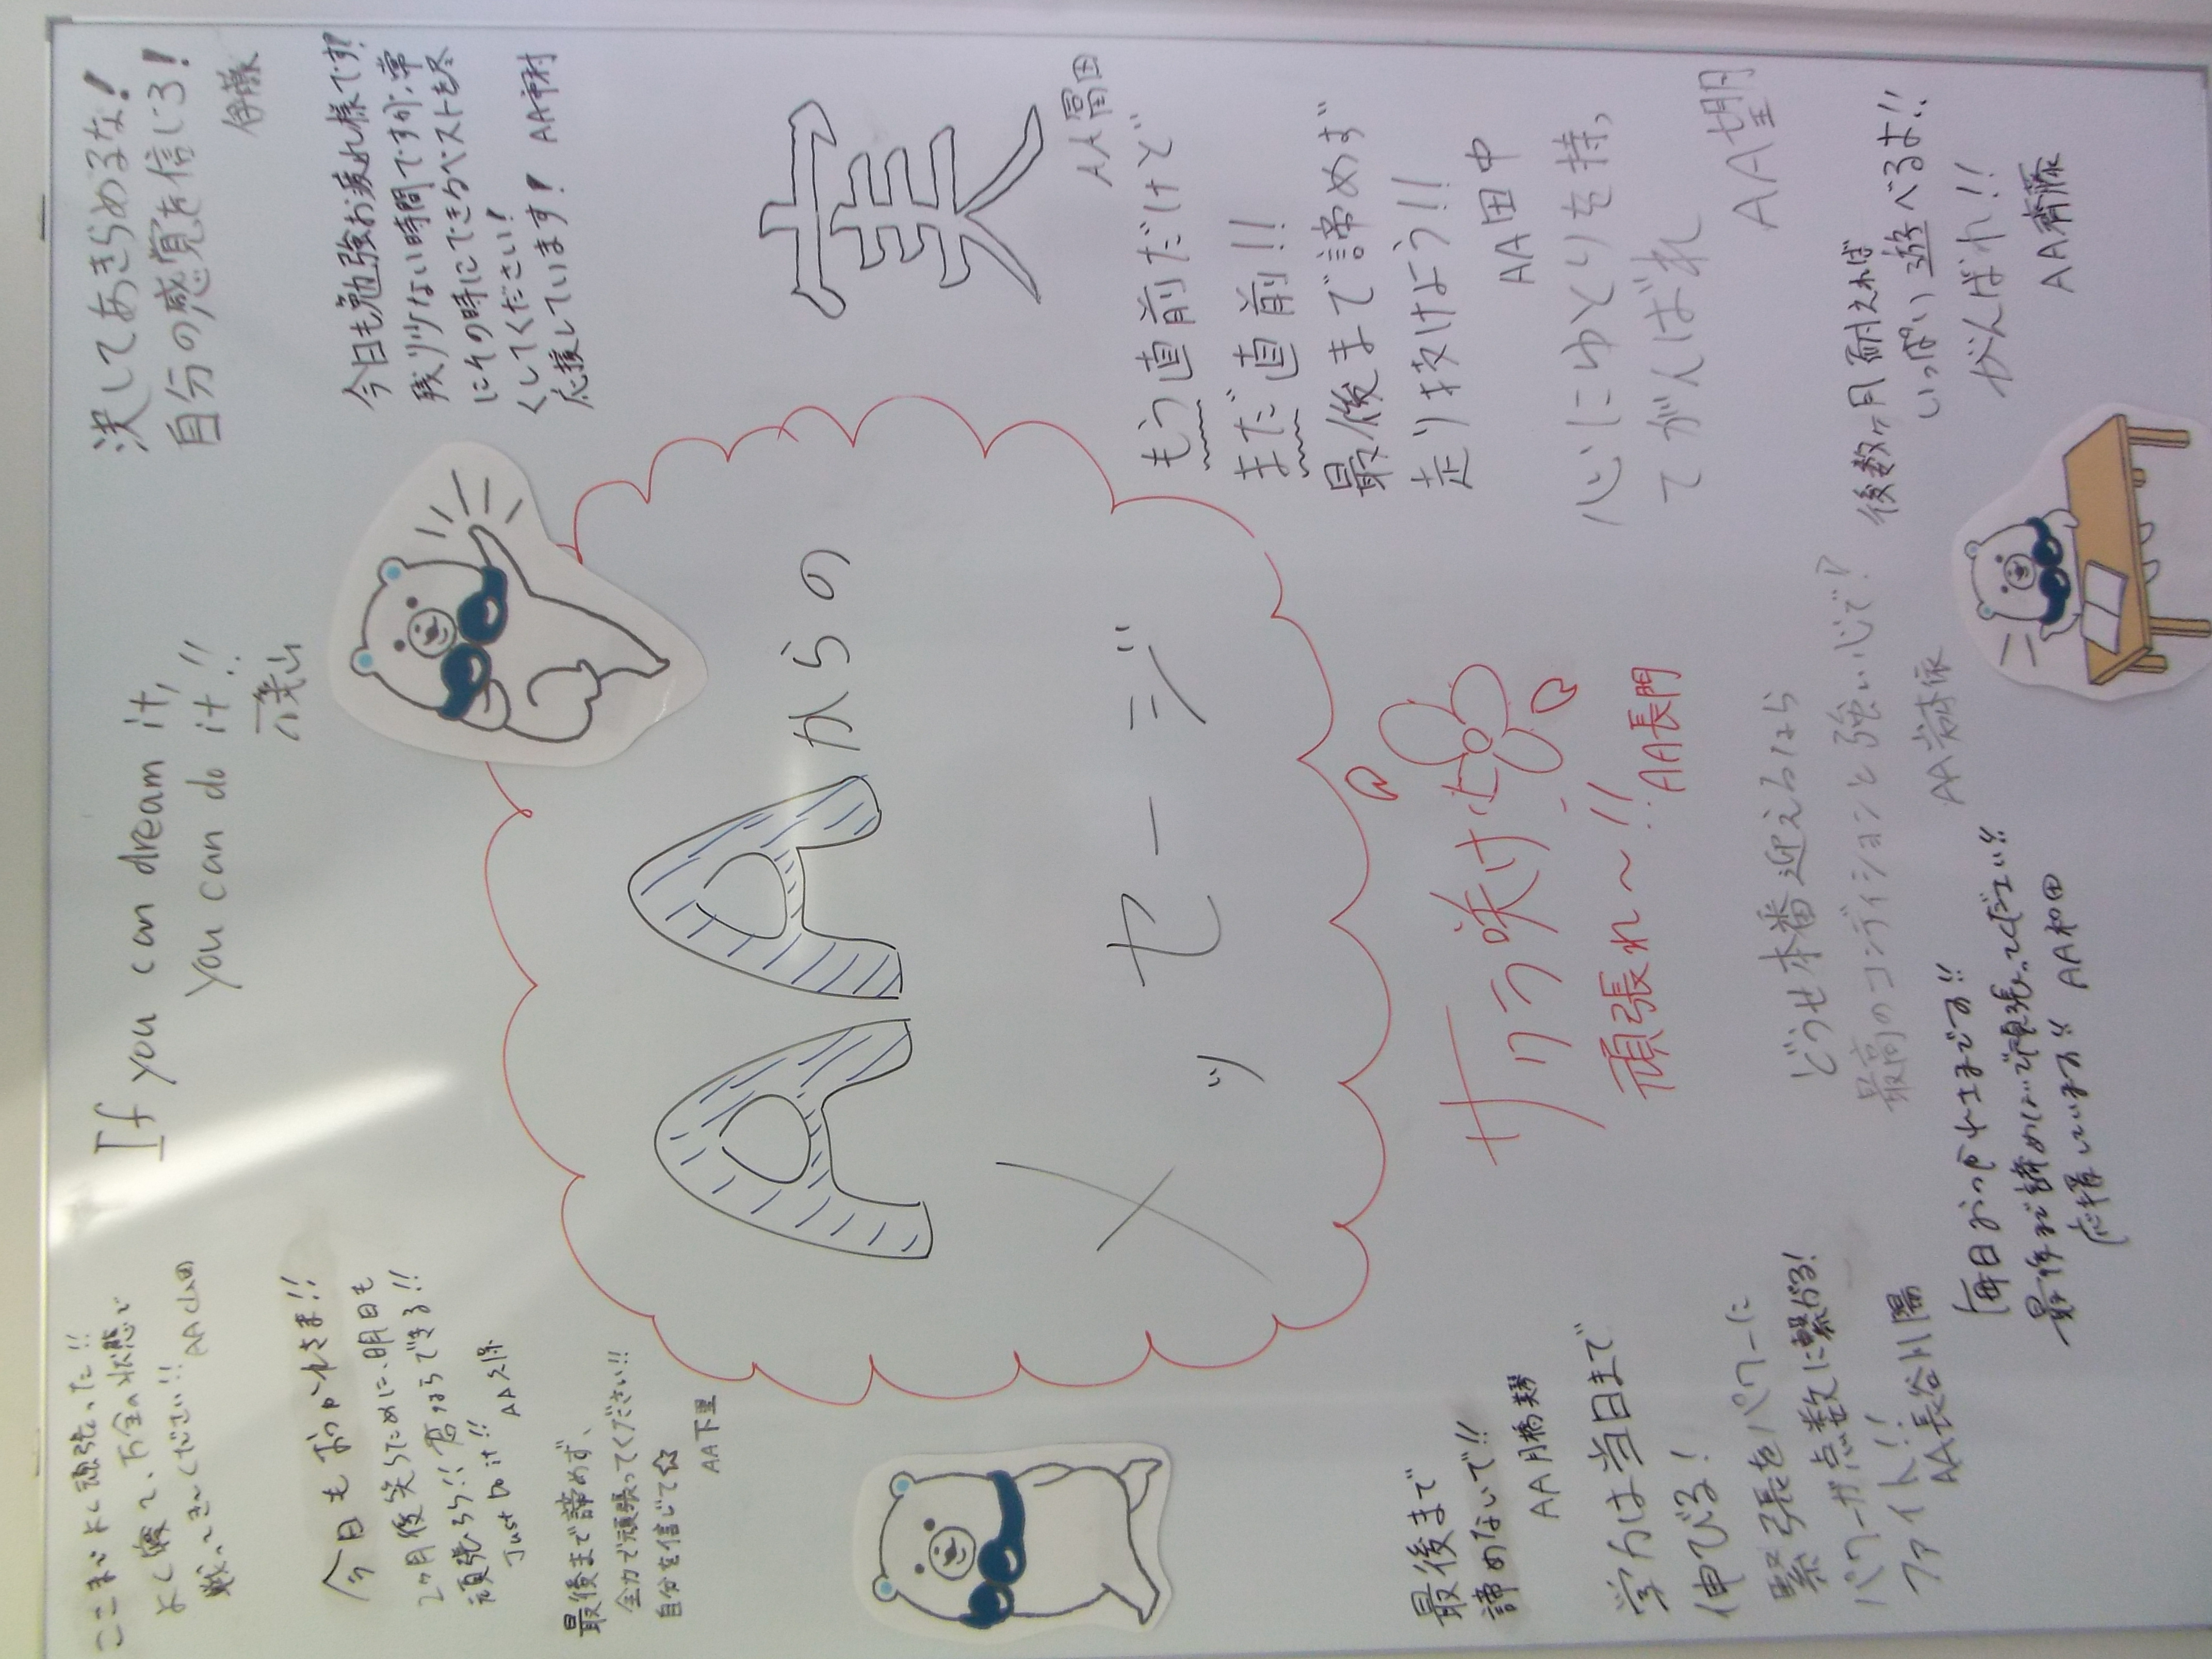 AAからの
メッセージ
ここまでよく頑張った!!
よく寝て、万全の状態で
戦ってきてください!! AA山田
今日もおつかれさま!!
2ヶ月後笑うために、明日も
頑張ろう!! 君ならできる!!
Just Do it!! AA久保
最後まで諦めず、
全力で頑張ってください!!
自分を信じて☆
AA下里
If you can dream it,
you can do it!!
決してあきらめるな!
自分の感覚を信じろ!
伊藤
今日も勉強お疲れ様です!
残り少ない時間ですが、常
にその時にできるベストを尽
くしてください!
応援しています! AA中村
実
AA冨田
もう直前だけど
まだ直前!!
最後まで諦めず
走り抜けよう!!
AA田中
心にゆとりを持っ
てがんばれ
AA望月
後数ヶ月耐えれば
いっぱい遊べるよ!!
がんばれ!!
AA齊藤
サクラ咲け
頑張れ~!!
AA長門
どうせ本番迎えるなら
最高のコンディションと強い心で!
AA
毎日おつかれさまです!!
最後まで諦めないで頑張ってください!!
応援しています!! AA和田
最後まで
諦めないで!!
AA月橋
学力は当日まで
伸びる!
緊張をパワーに
パワーが点数に繋がる!
ファイト!!
AA長谷川陽